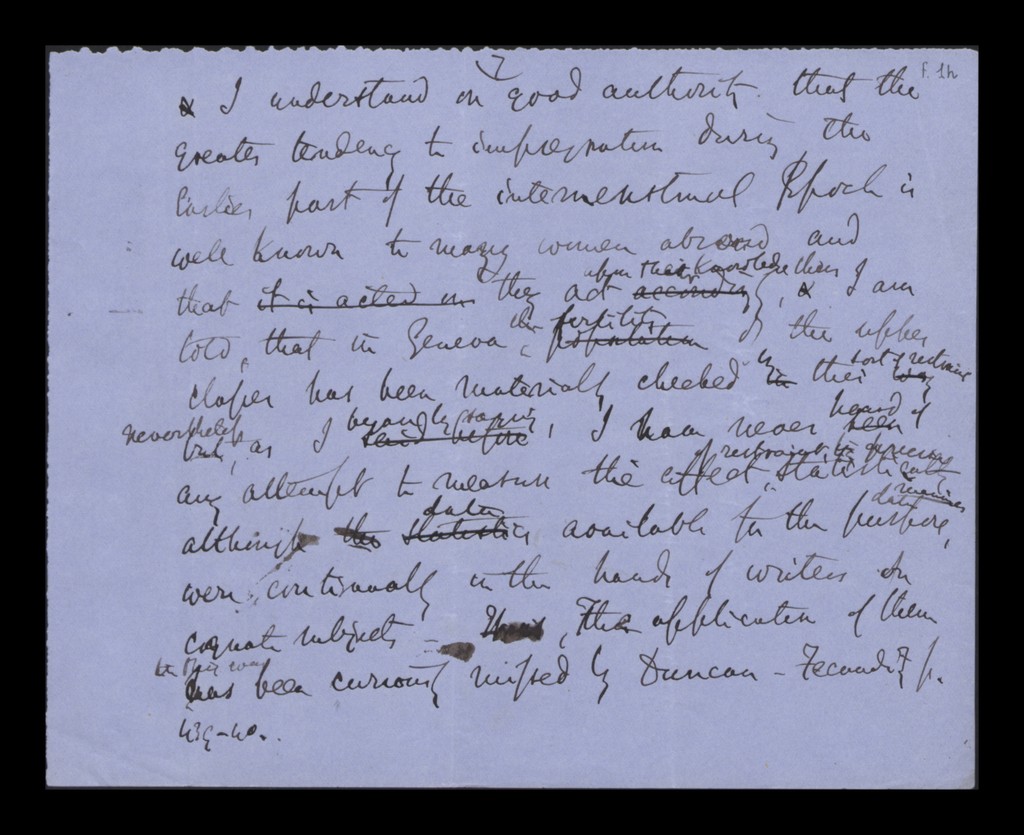 7
f. 1h
x I understand on good authority that the
greater tendency to impregnation during the
Earlier part of the intermenstrual Epoch is
well known to many women abroad and
upon that knowledge then
that it is acted on they act accordingly, x I am
the fertility
told, that in Geneva, population of the upper
sort of restraint
classes has been materially checked by in this way
nevertheless beyond heard of
but, as I said before, I have never seen
of restraint
any attempt to measure the effect statistically
data
although the statistics available for the purpose,
were continually in the hands of writers on
cognate subjects - The application of them
in this way
has been curiously missed by Duncan - Fecundity p.
439-40.